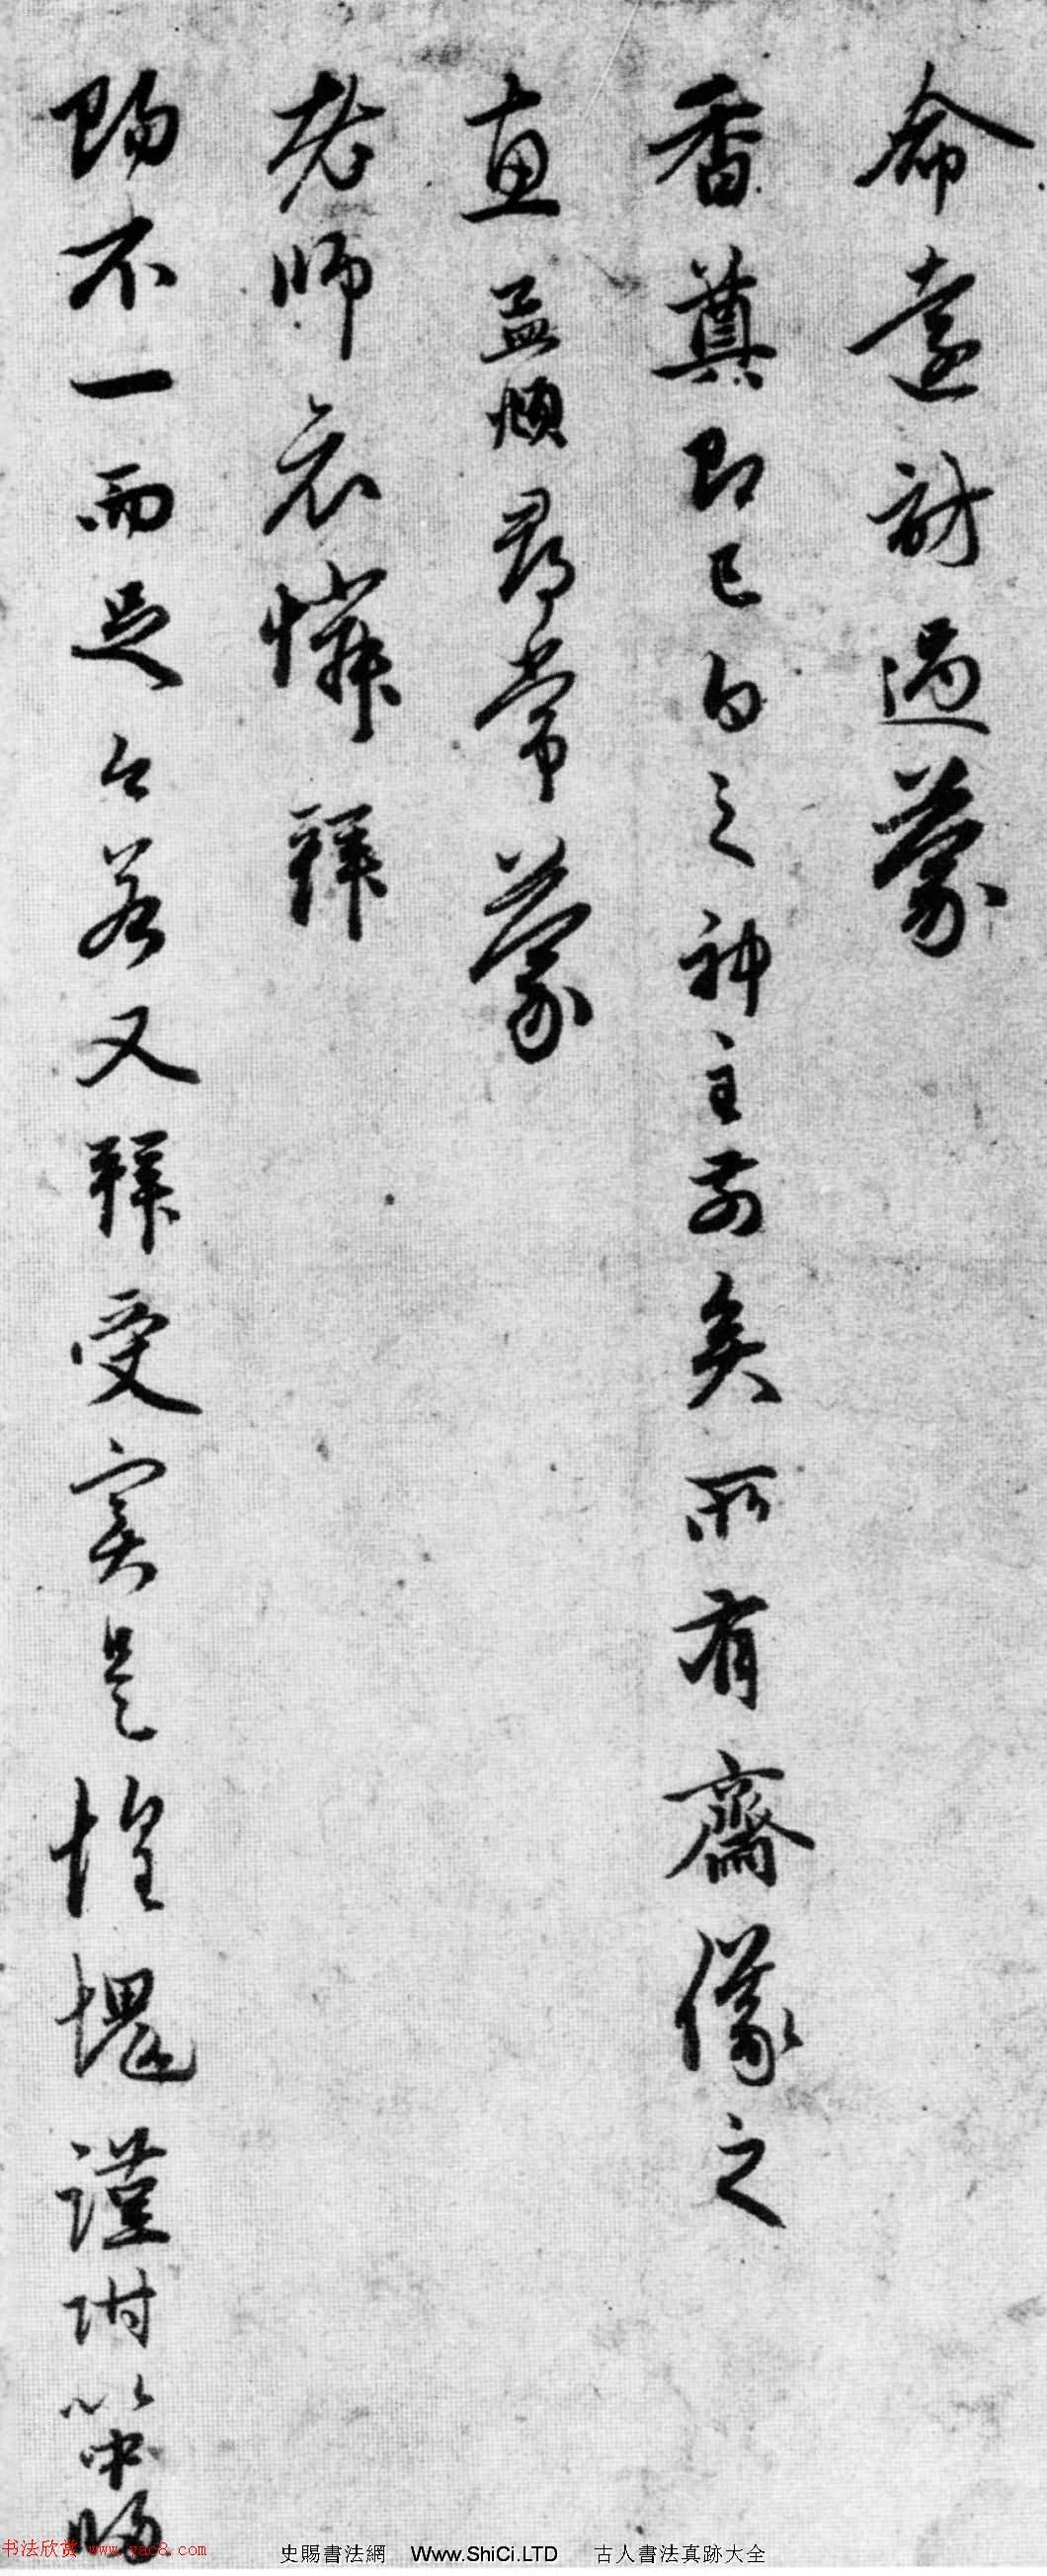 命遠訪過蒙
香奠即已白之神主前矣所有齋儀之
惠孟頫尋常蒙
老師哀憐拜
賜不一而足今若又拜受實是惶愧謹附
賜
书法欣赏 www.yac8.com
史賜書法網 Www.ShiCi.LTD 古人書法真跡大全